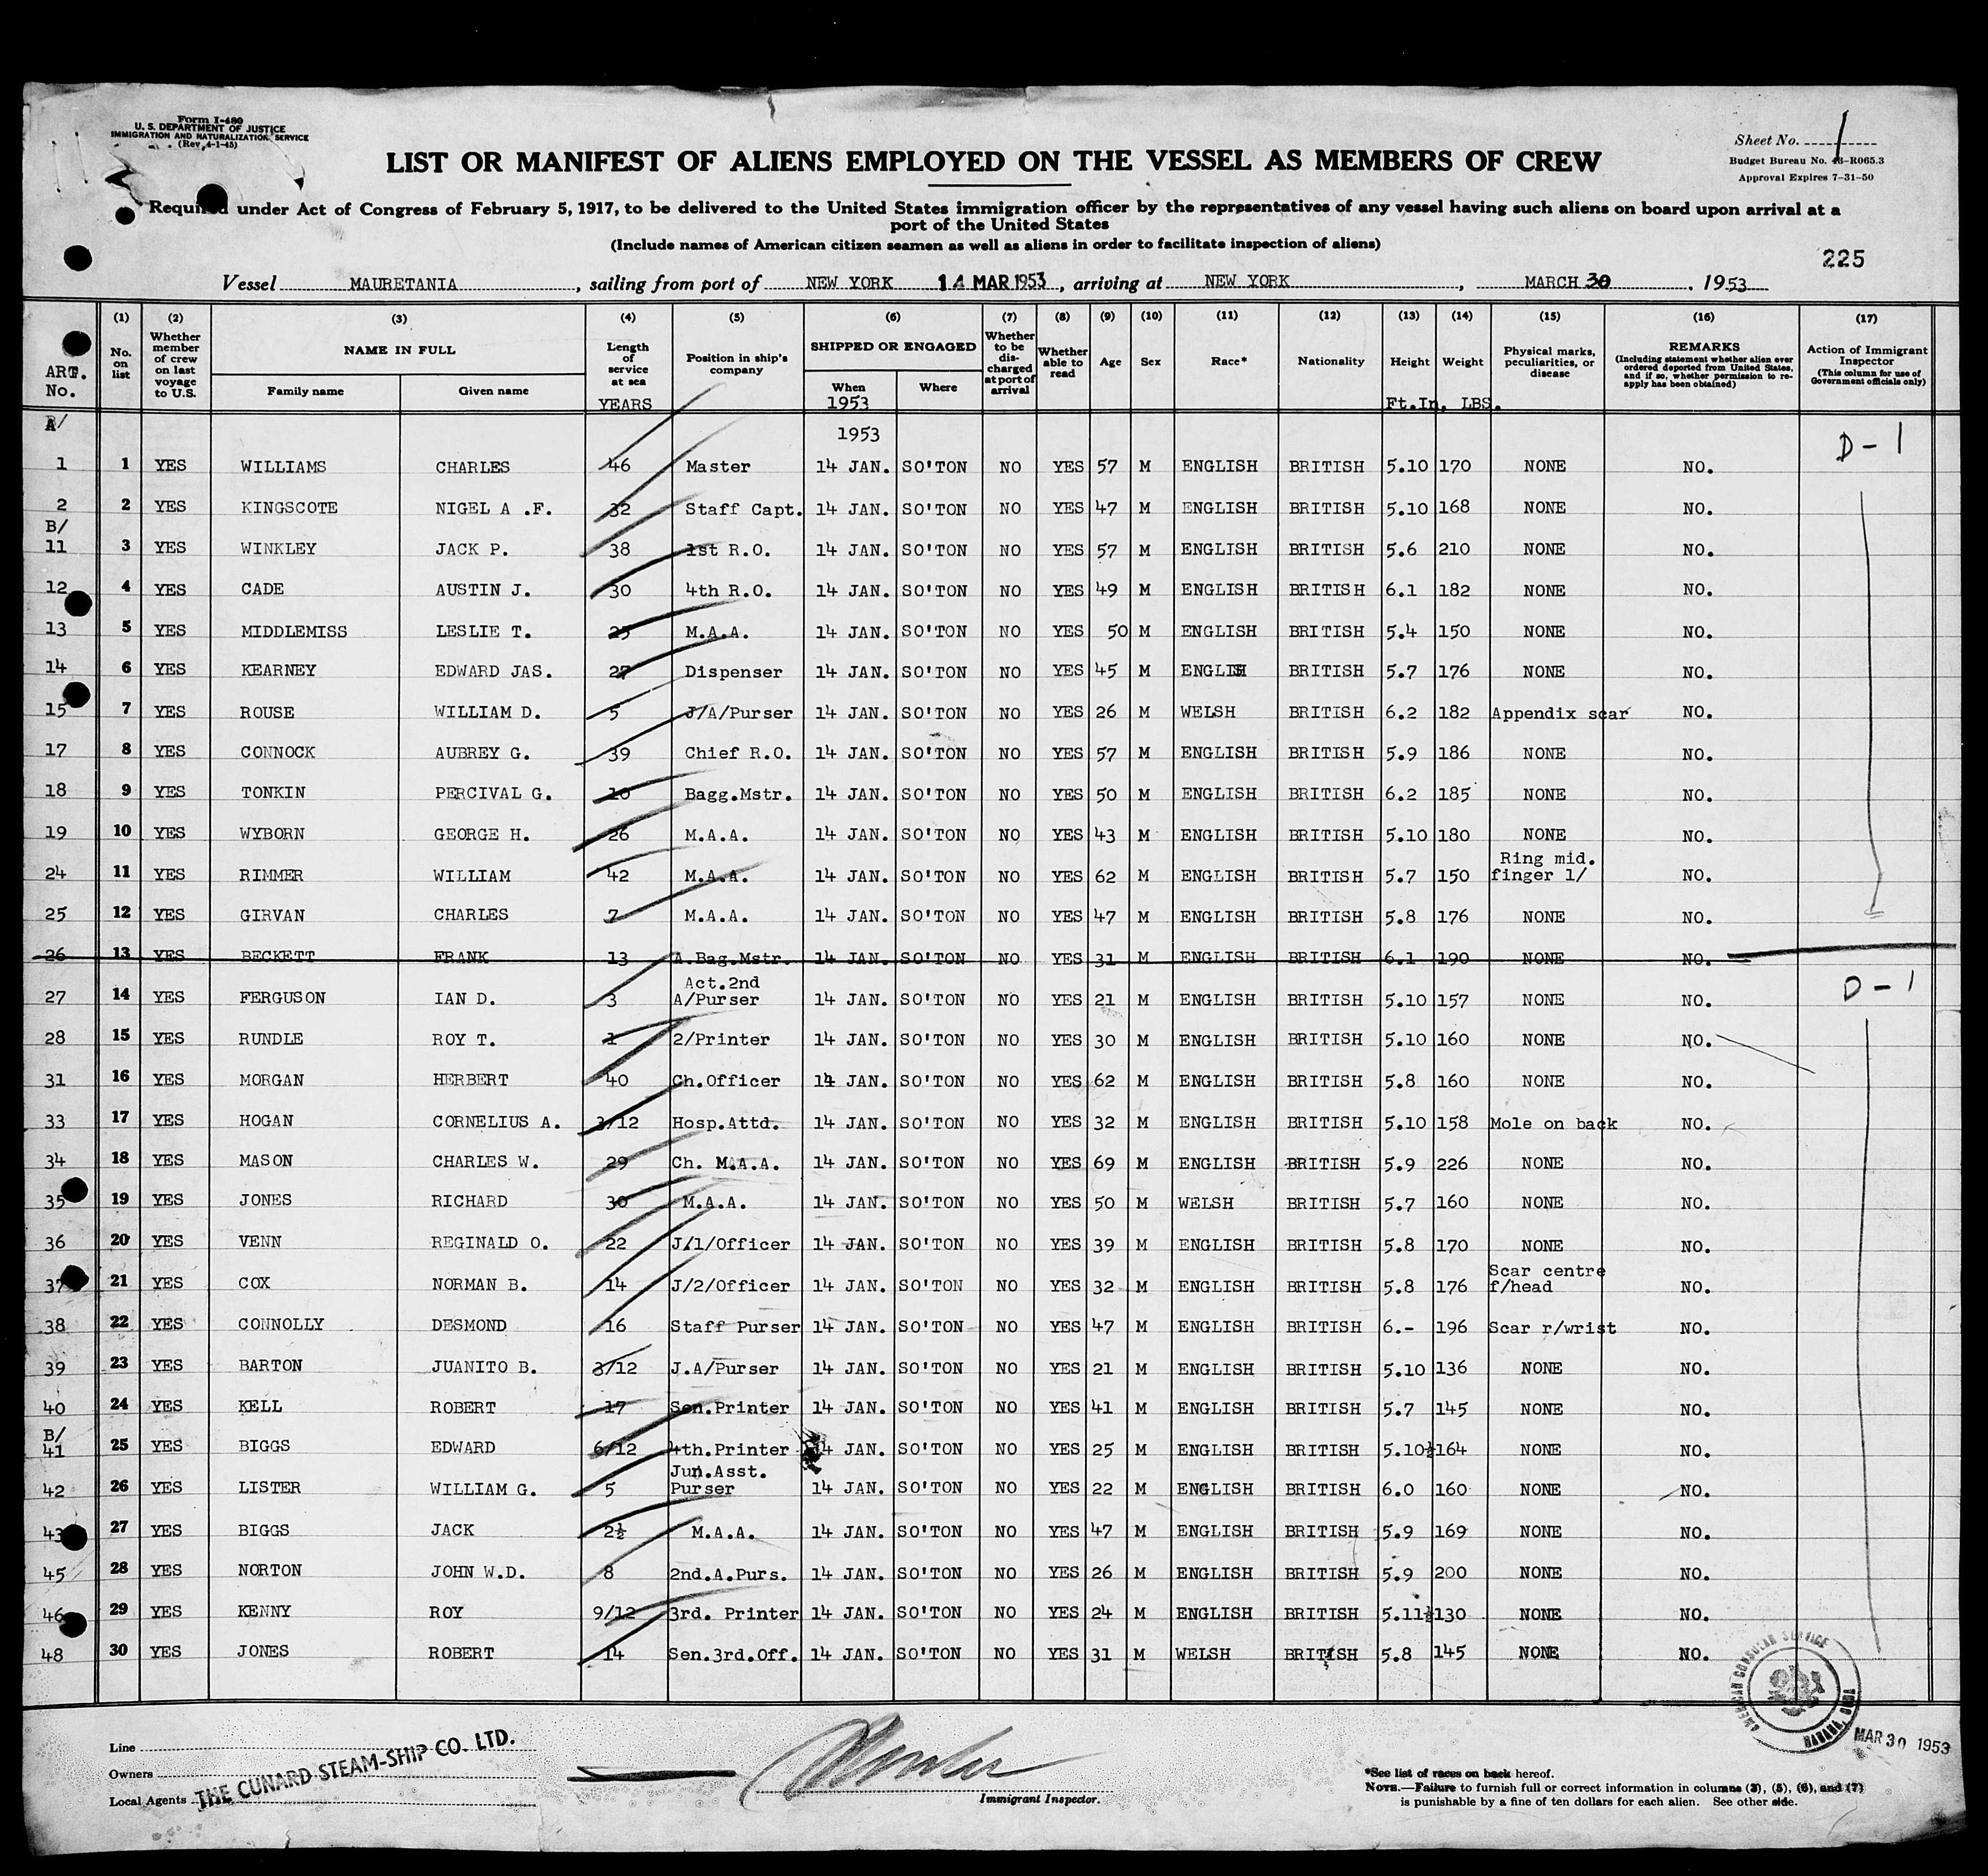 Form I-480
U. S. DEPARTMENT OF JUSTICE
IMMIGRATION AND NATURALIZATION SERVICE
(Rev. 4-1-45)
Sheet No. 1
Budget Bureau No. 43-R065.3
Approval Expires 7-31-50
LIST OR MANIFEST OF ALIENS EMPLOYED ON THE VESSEL AS MEMBERS OF CREW
Required under Act of Congress of February 5, 1917, to be delivered to the United States immigration officer by the representatives of any vessel having such aliens on board upon arrival at a
port of the United States
(Include names of American citizen seamen as well as aliens in order to facilitate inspection of aliens)
225
Vessel MAURETANIA, sailing from port of NEW YORK 14 MAR 1953, arriving at NEW YORK, MARCH 30, 1953
ART. No.
(1) No. on list
(2) Whether member of crew on last voyage to U.S.
(3) NAME IN FULL
Family name Given name
(4) Length of service at sea YEARS
(5) Position in ship's company
(6) SHIPPED OR ENGAGED
When 1953 Where
(7) Whether to be discharged at port of arrival
(8) Whether able to read
(9) Age
(10) Sex
(11) Race*
(12) Nationality
(13) Height Ft.In.
(14) Weight LBS.
(15) Physical marks, peculiarities, or disease
(16) REMARKS (Including statement whether alien ever ordered deported from United States, and if so, whether permission to reapply has been obtained)
(17) Action of Immigrant Inspector (This column for use of Government officials only)
1953
D-1
1 1 YES WILLIAMS CHARLES 46 Master 14 JAN. SO'TON NO YES 57 M ENGLISH BRITISH 5.10 170 NONE NO.
2 2 YES KINGSCOTE NIGEL A .F. 32 Staff Capt. 14 JAN. SO'TON NO YES 47 M ENGLISH BRITISH 5.10 168 NONE NO.
B/
11 3 YES WINKLEY JACK P. 38 1st R.O. 14 JAN. SO'TON NO YES 57 M ENGLISH BRITISH 5.6 210 NONE NO.
12 4 YES CADE AUSTIN J. 30 4th R.O. 14 JAN. SO'TON NO YES 49 M ENGLISH BRITISH 6.1 182 NONE NO.
13 5 YES MIDDLEMISS LESLIE T. 25 M.A.A. 14 JAN. SO'TON NO YES 50 M ENGLISH BRITISH 5.4 150 NONE NO.
14 6 YES KEARNEY EDWARD JAS. 27 Dispenser 14 JAN. SO'TON NO YES 45 M ENGLISH BRITISH 5.7 176 NONE NO.
15 7 YES ROUSE WILLIAM D. 5 J/A/Purser 14 JAN. SO'TON NO YES 26 M WELSH BRITISH 6.2 182 Appendix scar NO.
17 8 YES CONNOCK AUBREY G. 39 Chief R.O. 14 JAN. SO'TON NO YES 57 M ENGLISH BRITISH 5.9 186 NONE NO.
18 9 YES TONKIN PERCIVAL G. 10 Bagg.Mstr. 14 JAN. SO'TON NO YES 50 M ENGLISH BRITISH 6.2 185 NONE NO.
19 10 YES WYBORN GEORGE H. 26 M.A.A. 14 JAN. SO'TON NO YES 43 M ENGLISH BRITISH 5.10 180 NONE NO.
24 11 YES RIMMER WILLIAM 42 M.A.A. 14 JAN. SO'TON NO YES 62 M ENGLISH BRITISH 5.7 150 Ring mid. finger l/ NO.
25 12 YES GIRVAN CHARLES 7 M.A.A. 14 JAN. SO'TON NO YES 47 M ENGLISH BRITISH 5.8 176 NONE NO.
26 13 YES BECKETT FRANK 13 A.Bag.Mstr. 14 JAN. SO'TON NO YES 31 M ENGLISH BRITISH 6.1 190 NONE NO.
27 14 YES FERGUSON IAN D. 3 Act.2nd A/Purser 14 JAN. SO'TON NO YES 21 M ENGLISH BRITISH 5.10 157 NONE NO. D-1
28 15 YES RUNDLE ROY T. 1 2/Printer 14 JAN. SO'TON NO YES 30 M ENGLISH BRITISH 5.10 160 NONE NO.
31 16 YES MORGAN HERBERT 40 Ch.Officer 14 JAN. SO'TON NO YES 62 M ENGLISH BRITISH 5.8 160 NONE NO.
33 17 YES HOGAN CORNELIUS A. 3/12 Hosp.Attd. 14 JAN. SO'TON NO YES 32 M ENGLISH BRITISH 5.10 158 Mole on back NO.
34 18 YES MASON CHARLES W. 29 Ch. M.A.A. 14 JAN. SO'TON NO YES 69 M ENGLISH BRITISH 5.9 226 NONE NO.
35 19 YES JONES RICHARD 30 M.A.A. 14 JAN. SO'TON NO YES 50 M WELSH BRITISH 5.7 160 NONE NO.
36 20 YES VENN REGINALD O. 22 J/1/Officer 14 JAN. SO'TON NO YES 39 M ENGLISH BRITISH 5.8 170 NONE NO.
37 21 YES COX NORMAN B. 14 J/2/Officer 14 JAN. SO'TON NO YES 32 M ENGLISH BRITISH 5.8 176 Scar centre f/head NO.
38 22 YES CONNOLLY DESMOND 16 Staff Purser 14 JAN. SO'TON NO YES 47 M ENGLISH BRITISH 6.- 196 Scar r/wrist NO.
39 23 YES BARTON JUANITO B. 3/12 J.A/Purser 14 JAN. SO'TON NO YES 21 M ENGLISH BRITISH 5.10 136 NONE NO.
40 24 YES KELL ROBERT 17 Sen.Printer 14 JAN. SO'TON NO YES 41 M ENGLISH BRITISH 5.7 145 NONE NO.
B/
41 25 YES BIGGS EDWARD 6/12 4th.Printer 14 JAN. SO'TON NO YES 25 M ENGLISH BRITISH 5.10½ 164 NONE NO.
42 26 YES LISTER WILLIAM G. 5 Jun.Asst. Purser 14 JAN. SO'TON NO YES 22 M ENGLISH BRITISH 6.0 160 NONE NO.
43 27 YES BIGGS JACK 2½ M.A.A. 14 JAN. SO'TON NO YES 47 M ENGLISH BRITISH 5.9 169 NONE NO.
45 28 YES NORTON JOHN W.D. 8 2nd.A.Purs. 14 JAN. SO'TON NO YES 26 M ENGLISH BRITISH 5.9 200 NONE NO.
46 29 YES KENNY ROY 9/12 3rd. Printer 14 JAN. SO'TON NO YES 24 M ENGLISH BRITISH 5.11½ 130 NONE NO.
48 30 YES JONES ROBERT 14 Sen.3rd.Off. 14 JAN. SO'TON NO YES 31 M WELSH BRITISH 5.8 145 NONE NO.
AMERICAN CONSULAR SERVICE
HABANA, CUBA
MAR 30 1953
Line
Owners
Local Agents
THE CUNARD STEAM-SHIP CO. LTD.
Immigrant Inspector.
*See list of races on back hereof.
NOTE.—Failure to furnish full or correct information in columns (3), (5), (6), and (7)
is punishable by a fine of ten dollars for each alien. See other side.